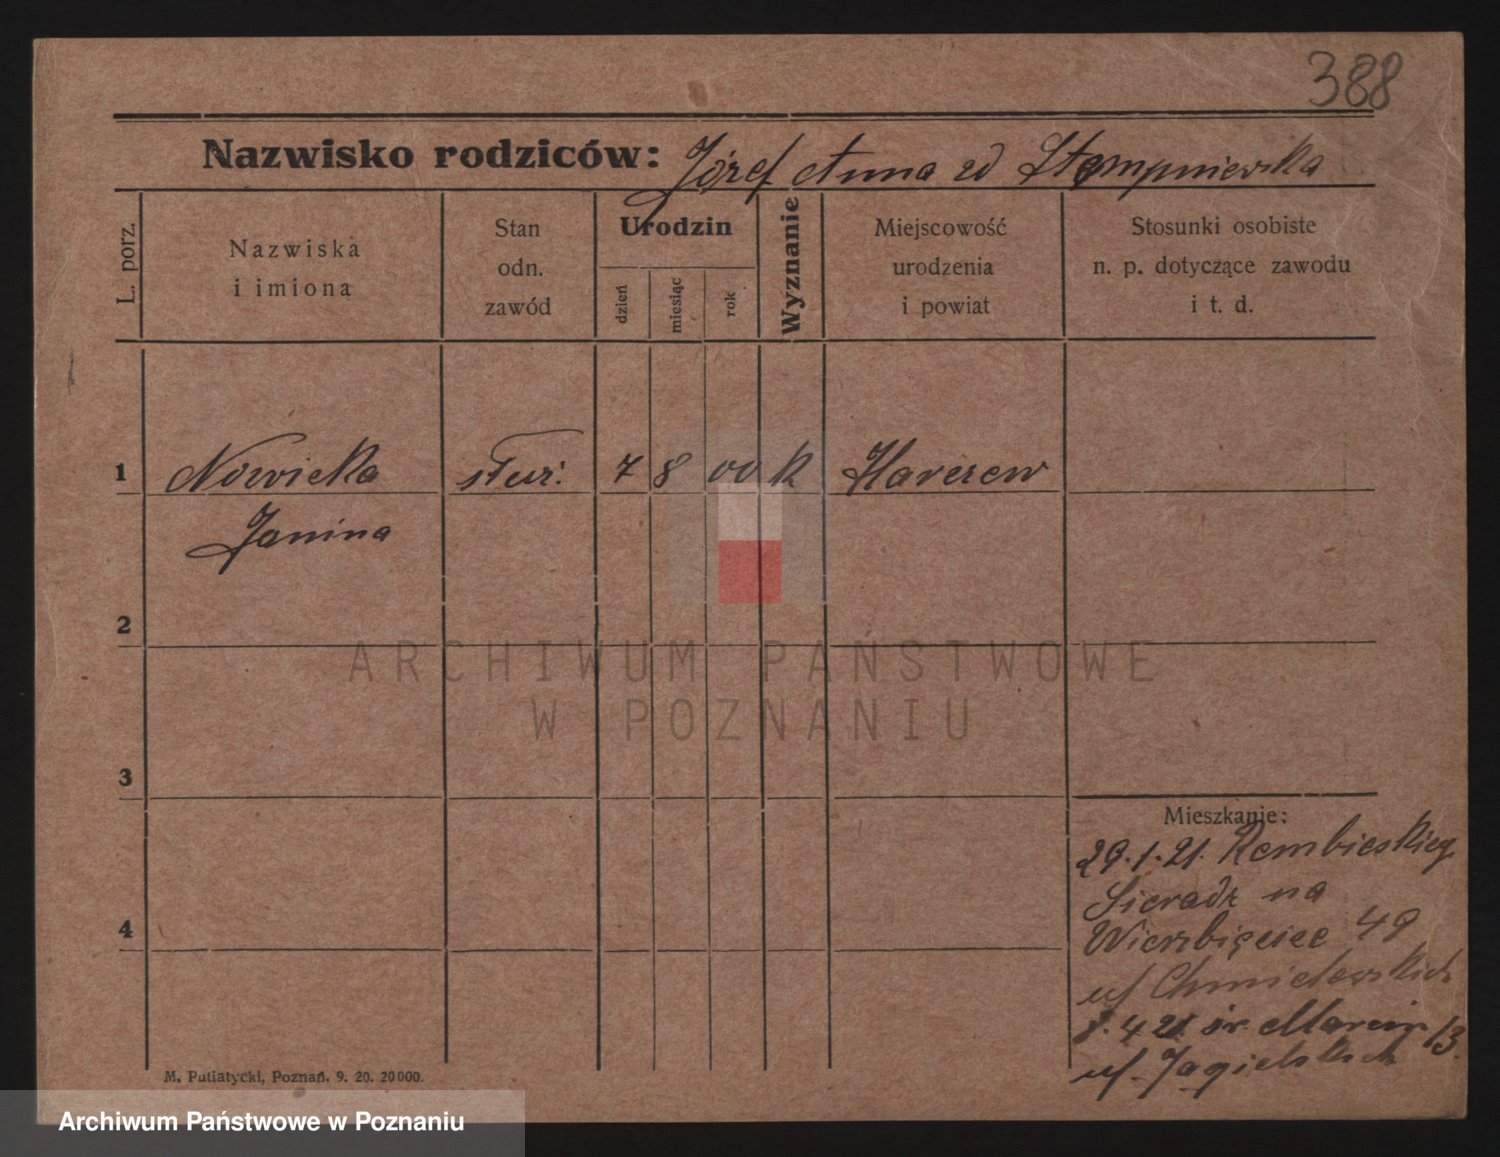 388
Nazwisko rodziców: Józef Anna zd Stempniewska
L. porz.
Nazwiska
i imiona
Stan
odn.
zawód
Urodzin
dzień
miesiąc
rok
Wyznanie
Miejscowość
urodzenia
i powiat
Stosunki osobiste
n. p. dotyczące zawodu
i t. d.
1 Nowicka służ. 7 8 00 k
Janina
2
ARCHIWUM PAŃSTWOWE
W POZNANIU
3
4
Mieszkanie:
29.1.21.
Sieradz na
Wierzbięcice 49
u/ Chmielewskich
8.4 21 św. Marcin 13.
u/ Jagielskich
M. Putiatycki, Poznań. 9. 20. 20000.
Archiwum Państwowe w Poznaniu